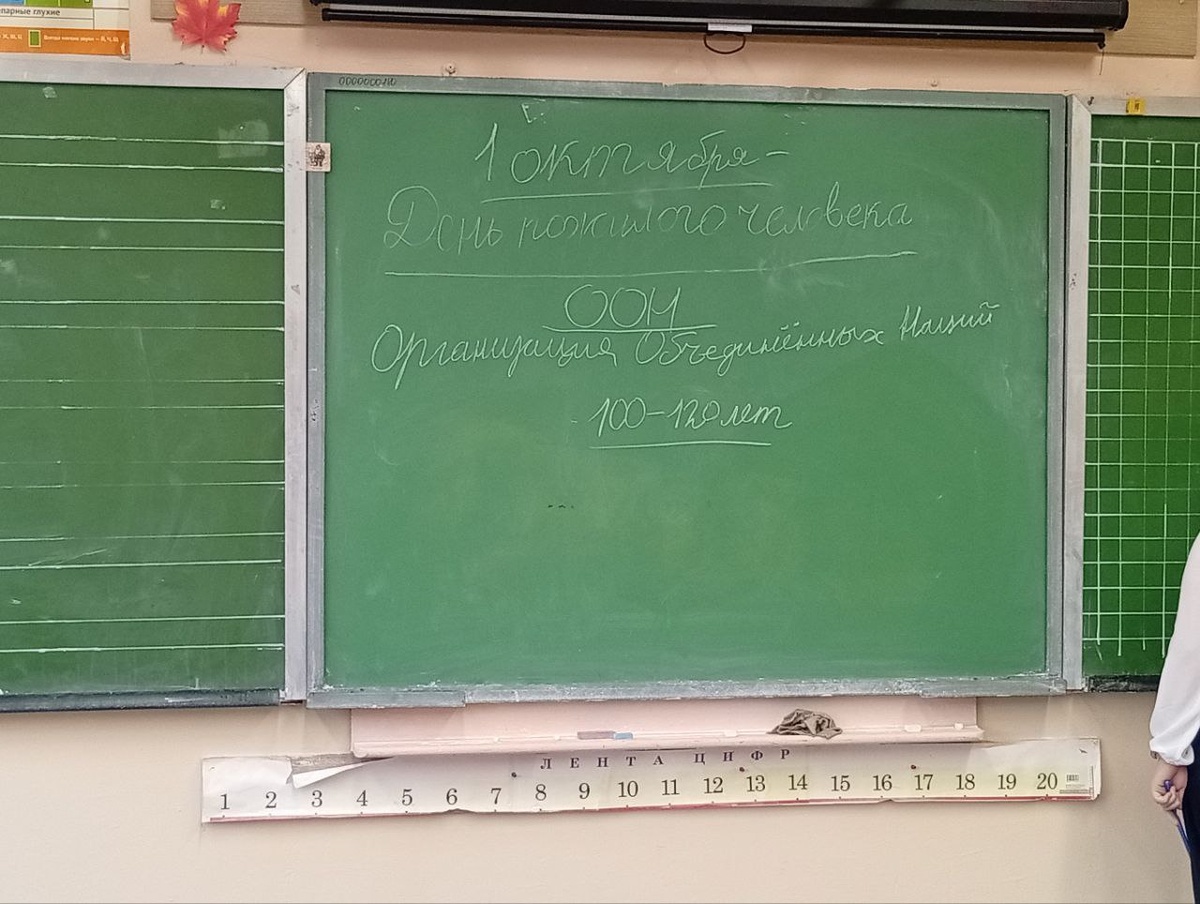 парные глухие
1 октября –
День пожилого человека
ООН
Организация Объединённых Наций
100–120 лет
ЛЕНТА ЦИФР
1 2 3 4 5 6 7 8 9 10 11 12 13 14 15 16 17 18 19 20